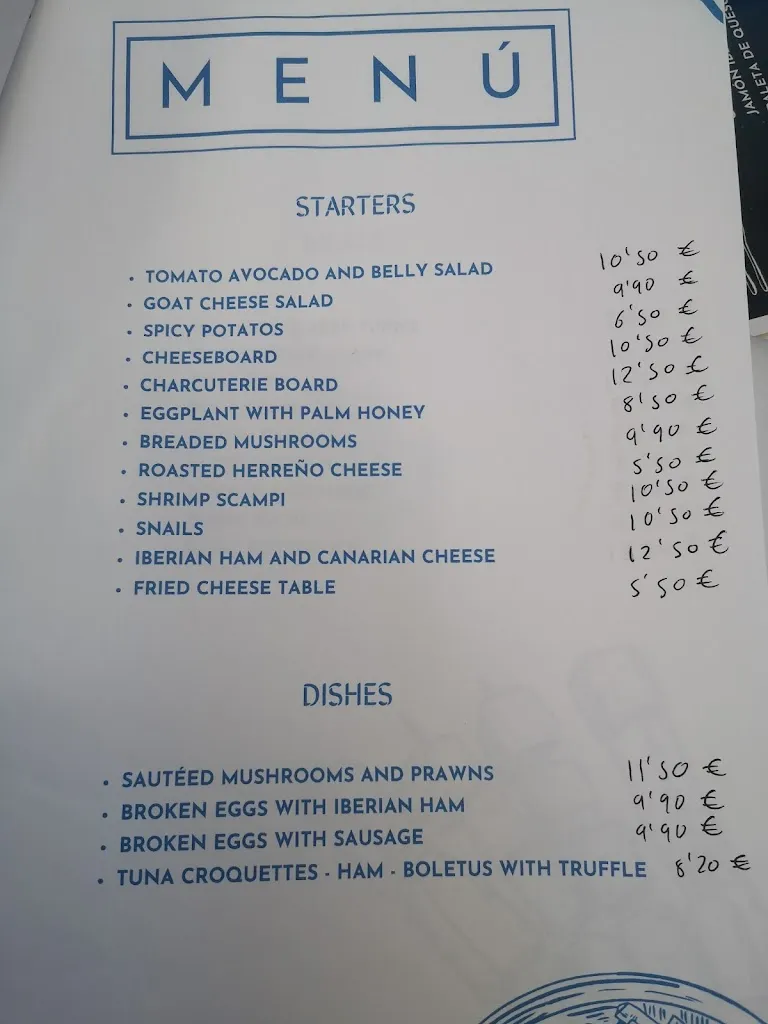 MENÚ
STARTERS
• TOMATO AVOCADO AND BELLY SALAD 10'50 €
• GOAT CHEESE SALAD 9'90 €
• SPICY POTATOS 6'50 €
• CHEESEBOARD 10'50 €
• CHARCUTERIE BOARD 12'50 €
• EGGPLANT WITH PALM HONEY 8'50 €
• BREADED MUSHROOMS 9'90 €
• ROASTED HERREÑO CHEESE 5'50 €
• SHRIMP SCAMPI 10'50 €
• SNAILS 10'50 €
• IBERIAN HAM AND CANARIAN CHEESE 12'50 €
• FRIED CHEESE TABLE 5'50 €
DISHES
• SAUTÉED MUSHROOMS AND PRAWNS 11'50 €
• BROKEN EGGS WITH IBERIAN HAM 9'90 €
• BROKEN EGGS WITH SAUSAGE 9'90 €
• TUNA CROQUETTES - HAM - BOLETUS WITH TRUFFLE 8'20 €
JAMÓN
DE